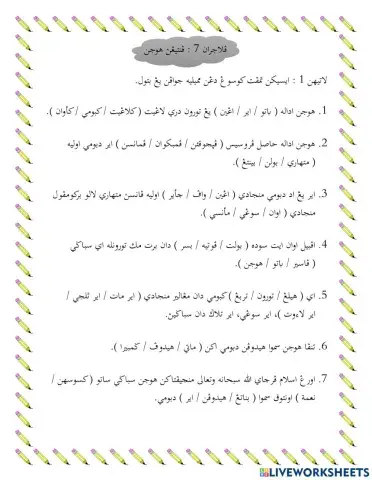 ڤلاجرن 7 : ڤنتيڠن هوجن
لاتيهن 1 : ايسيكن تمڤت كوسوڠ دڠن مميليه جواڤن يڠ بتول.
1. هوجن اداله ( باتو / اير / اڠين ) يڠ تورون دري لاڠيت ( كلاڠيت / كبومي / كأوان ).
2. هوجن اداله حاصل ڤروسيس ( ڤڽجوقن / ڤمبكوان / ڤمانسن ) اير دبومي اوليه
( متهاري / بولن / بينتڠ ).
3. اير يڠ اد دبومي منجادي ( اڠين / واڤ / جأير ) اوليه ڤانسن متهاري لالو بركومڤول
منجادي ( اوان / سوڠي / مأنسي ).
4. اڤبيل اوان ايت سوده ( بولت / ڤوتيه / بسر ) دان برت مك تورونله اي سباݢي
( ڤاسير / باتو / هوجن ).
5. اي ( هيلڠ / تورون / تربڠ ) كبومي دان مڠالير منجادي ( اير مات / اير تلجي /
اير لاءوت )، اير سوڠي، اير تلاݢ دان سباݢين.
6. تنڤا هوجن سموا هيدوڤن دبومي اكن ( ماتي / هيدوڤ / ݢمبيرا ).
7. اورڠ اسلام ڤرچاي الله سبحانه وتعالى منجڤتاكن هوجن سباݢي ساتو ( كسوسهن /
نعمة ) اونتوق سموا ( بناتڠ / هيدوڤن / اير ) دبومي.
LIVEWORKSHEETS